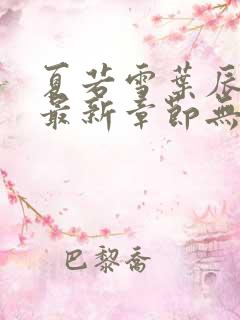 夏若雪葉辰
最新章節無
巴黎喬